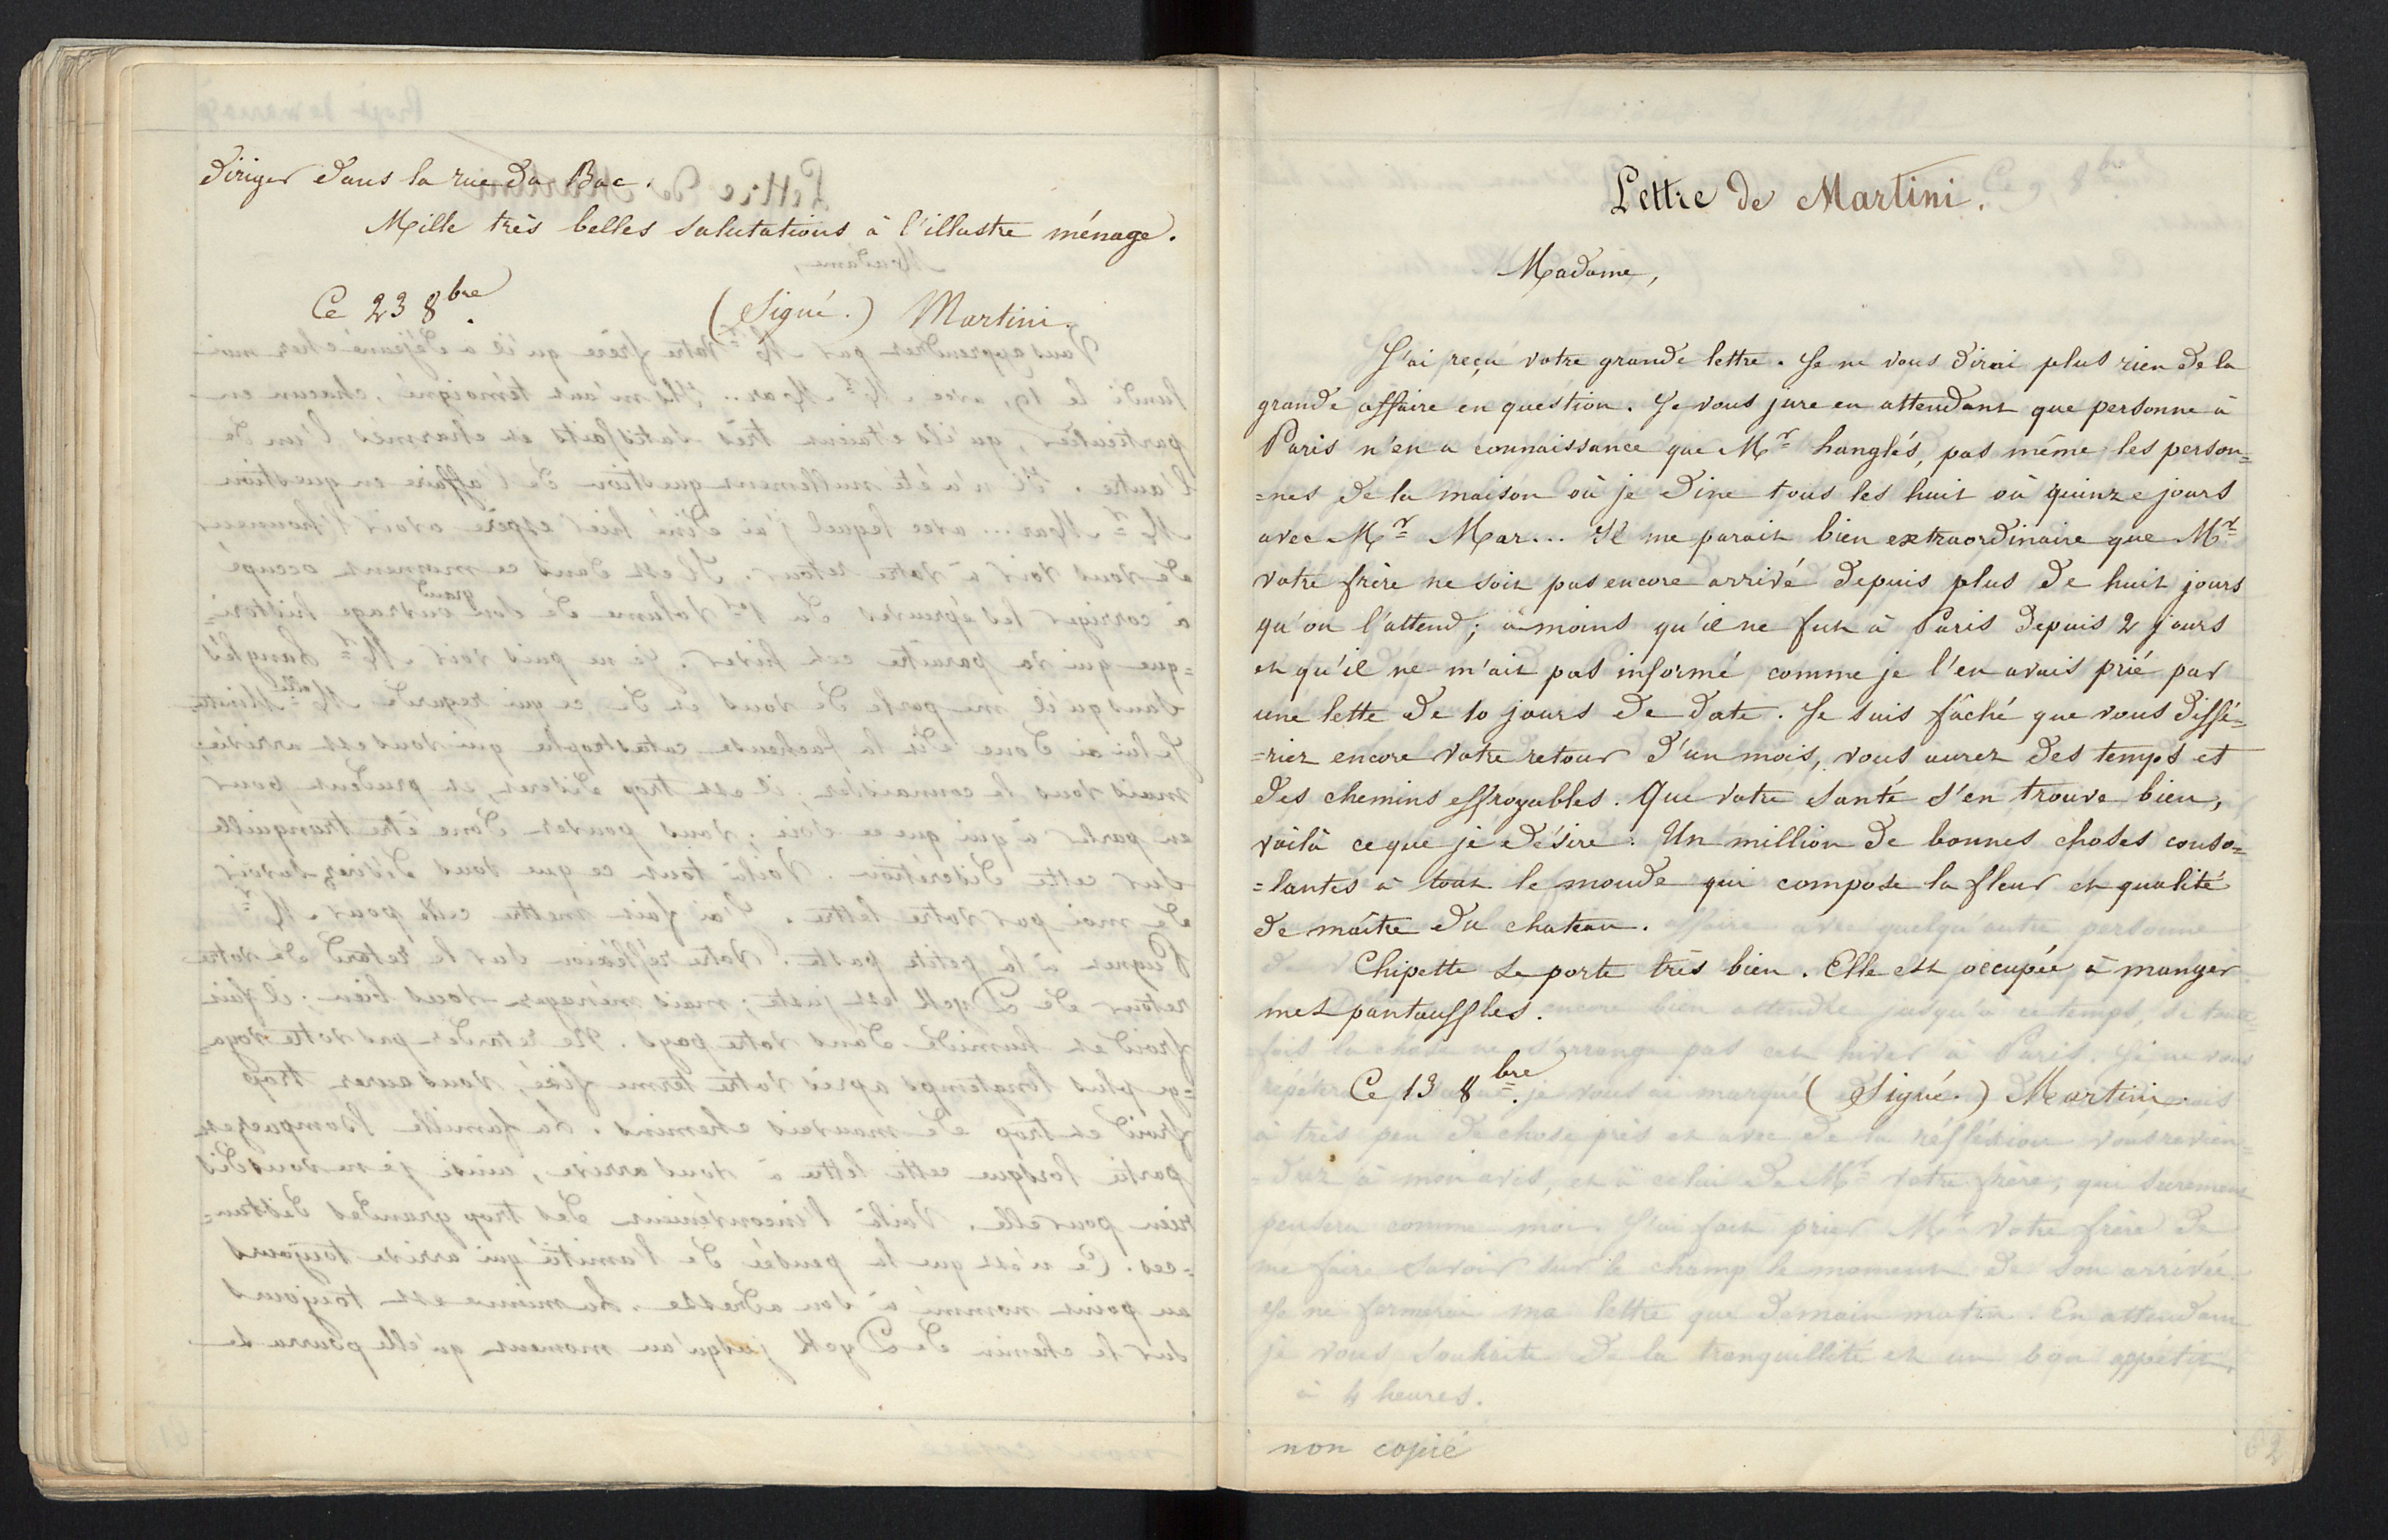 diriger dans la rue du Bac.
Mille très belles salutations à l'illustre ménage.
Ce 23 8bre.
(Signé.) Martini.
Lettre de Martini.
Madame,
J'ai reçu votre grande lettre. Je ne vous dirai plus rien de la
grande affaire en question. Je vous jure en attendant que personne à
Paris n'en a connaissance que Mr langlés, pas même les person=
=nes de la maison où je dine tous les huit où quinze jours
avec Mr Mar... Il me parait bien extraordinaire que Mr
votre frère ne soit pas encore arrivé depuis plus de huit jours
qu'on l'attend; à moins qu'il ne fut à Paris depuis 2 jours
et qu'il ne m'ait pas informé comme je l'en avais prié par
une lette de 10 jours de date. Je suis fâché que vous diffé=
=riez encore votre retour d'un mois, vous aurez des temps et
des chemins effroyables. Que votre santé s'en trouve bien,
voilà ce que je désire. Un million de bonnes choses conso=
=lantes à tout le monde qui compose la fleur et qualité
de maître du chateau.
Chipette se porte très bien. Elle est occupée à manger
mes pantouffles.
Ce 13 8bre. (Signé.) Martini.
non copié
62